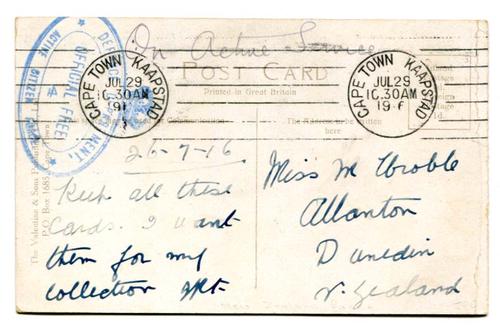 On Active Service
POST CARD
Printed in Great Britain
CAPE TOWN KAAPSTAD
JUL 29
10.30 AM
191
CAPE TOWN KAAPSTAD
JUL 29
10.30 AM
19 6
OFFICIAL FREE
ACTIVE CITIZEN
Communication
The Address to be Written
here
The Valentine & Sons
P.O. Box 1685
26-7-16
Keep all these
Cards. I want
them for my
collection
Miss M
Allanton
Dunedin
N. Zealand